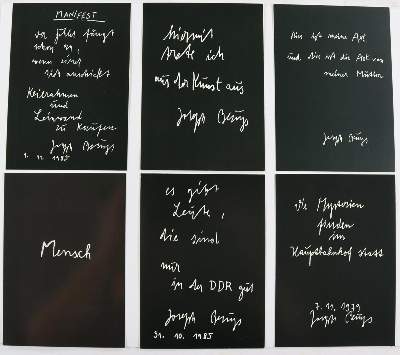 MANIFEST
der Fehler fängt
schon an,
wenn einer
sich anschickt
Keilrahmen
und
Leinwand
zu kaufen.
Joseph Beuys
1. 11. 1985
hiermit
trete ich
aus der Kunst aus
Joseph Beuys
Dies ist meine Axt
und dies ist die Axt von
meiner Mutter
Joseph Beuys
Mensch
es gibt
Leute,
die sind
nur
in der DDR gut
Joseph Beuys
31. 10. 1985
Die Mysterien
finden
im
Hauptbahnhof statt
7. 11. 1979
Joseph Beuys